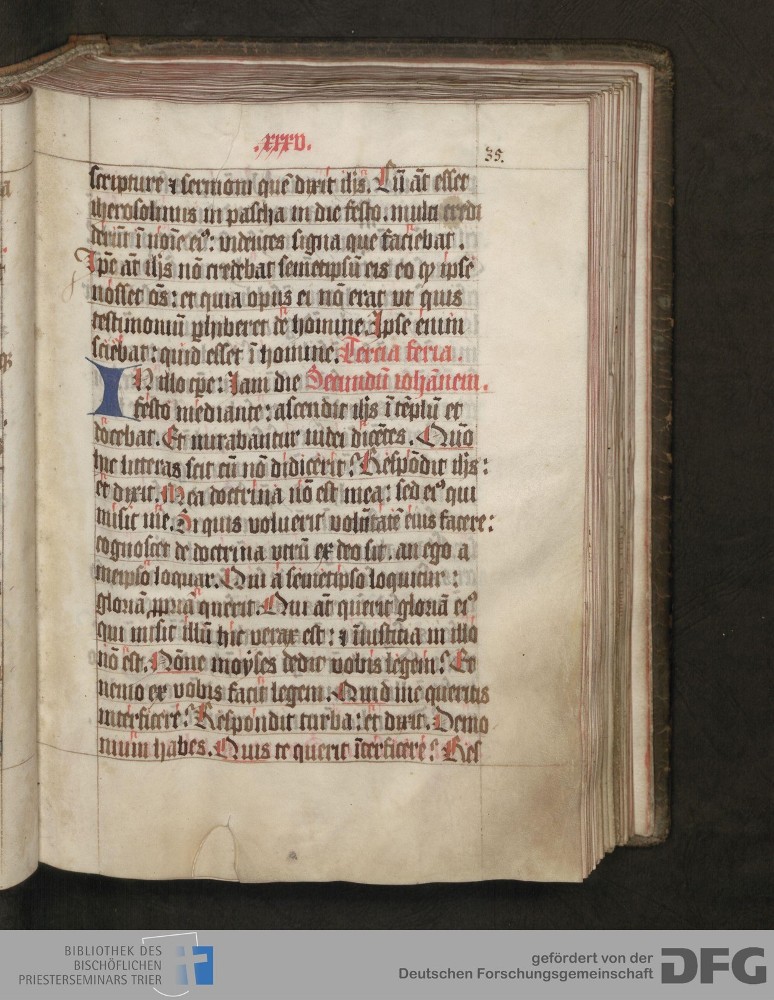 .xxxv.
35.
scripture ⁊ sermoni quē dixit ihs. Cū aūt esset
iherosolimis in pascha in die festo. multi credi
derūt ī noīe eiꝰ: videntes signa que faciebat.
Ipē aūt ihs nō credebat semetipsū eis eo ꝙ ipse
nosset oēs: et quia opus ei nō erat ut quis
testimoniū ꝑhiberet de homine. Ipse enim
sciebat: quid esset ī homine. Tercia feria.
IN illo tp̄e: Iam die Secundū iohānem.
festo mediante: ascendit ihs ī tēplū et
docebat. Et mirabantur iudei dicētes. Quō
hic litteras scit cū nō didicerit? Respōdit ihs:
et dixit. Mea doctrina nō est mea: sed eiꝰ qui
misit me. Si quis voluerit volūtatē eius facere:
cognoscet de doctrina utrū ex deo sit. an ego a
meipso loquar. Qui a semetipso loquitur:
gloriā ꝓpriā querit. Qui aūt querit gloriā eiꝰ
qui misit illū hic verax est: ⁊ iniusticia in illo
nō est. Nōne moyses dedit vobis legem? Et
nemo ex vobis facit legem. Quid me queritis
interficere? Respondit turba: et dixit. Demo
nium habes. Quis te querit īterficere? Res
BIBLIOTHEK DES
BISCHÖFLICHEN
PRIESTERSEMINARS TRIER
gefördert von der
Deutschen Forschungsgemeinschaft
DFG